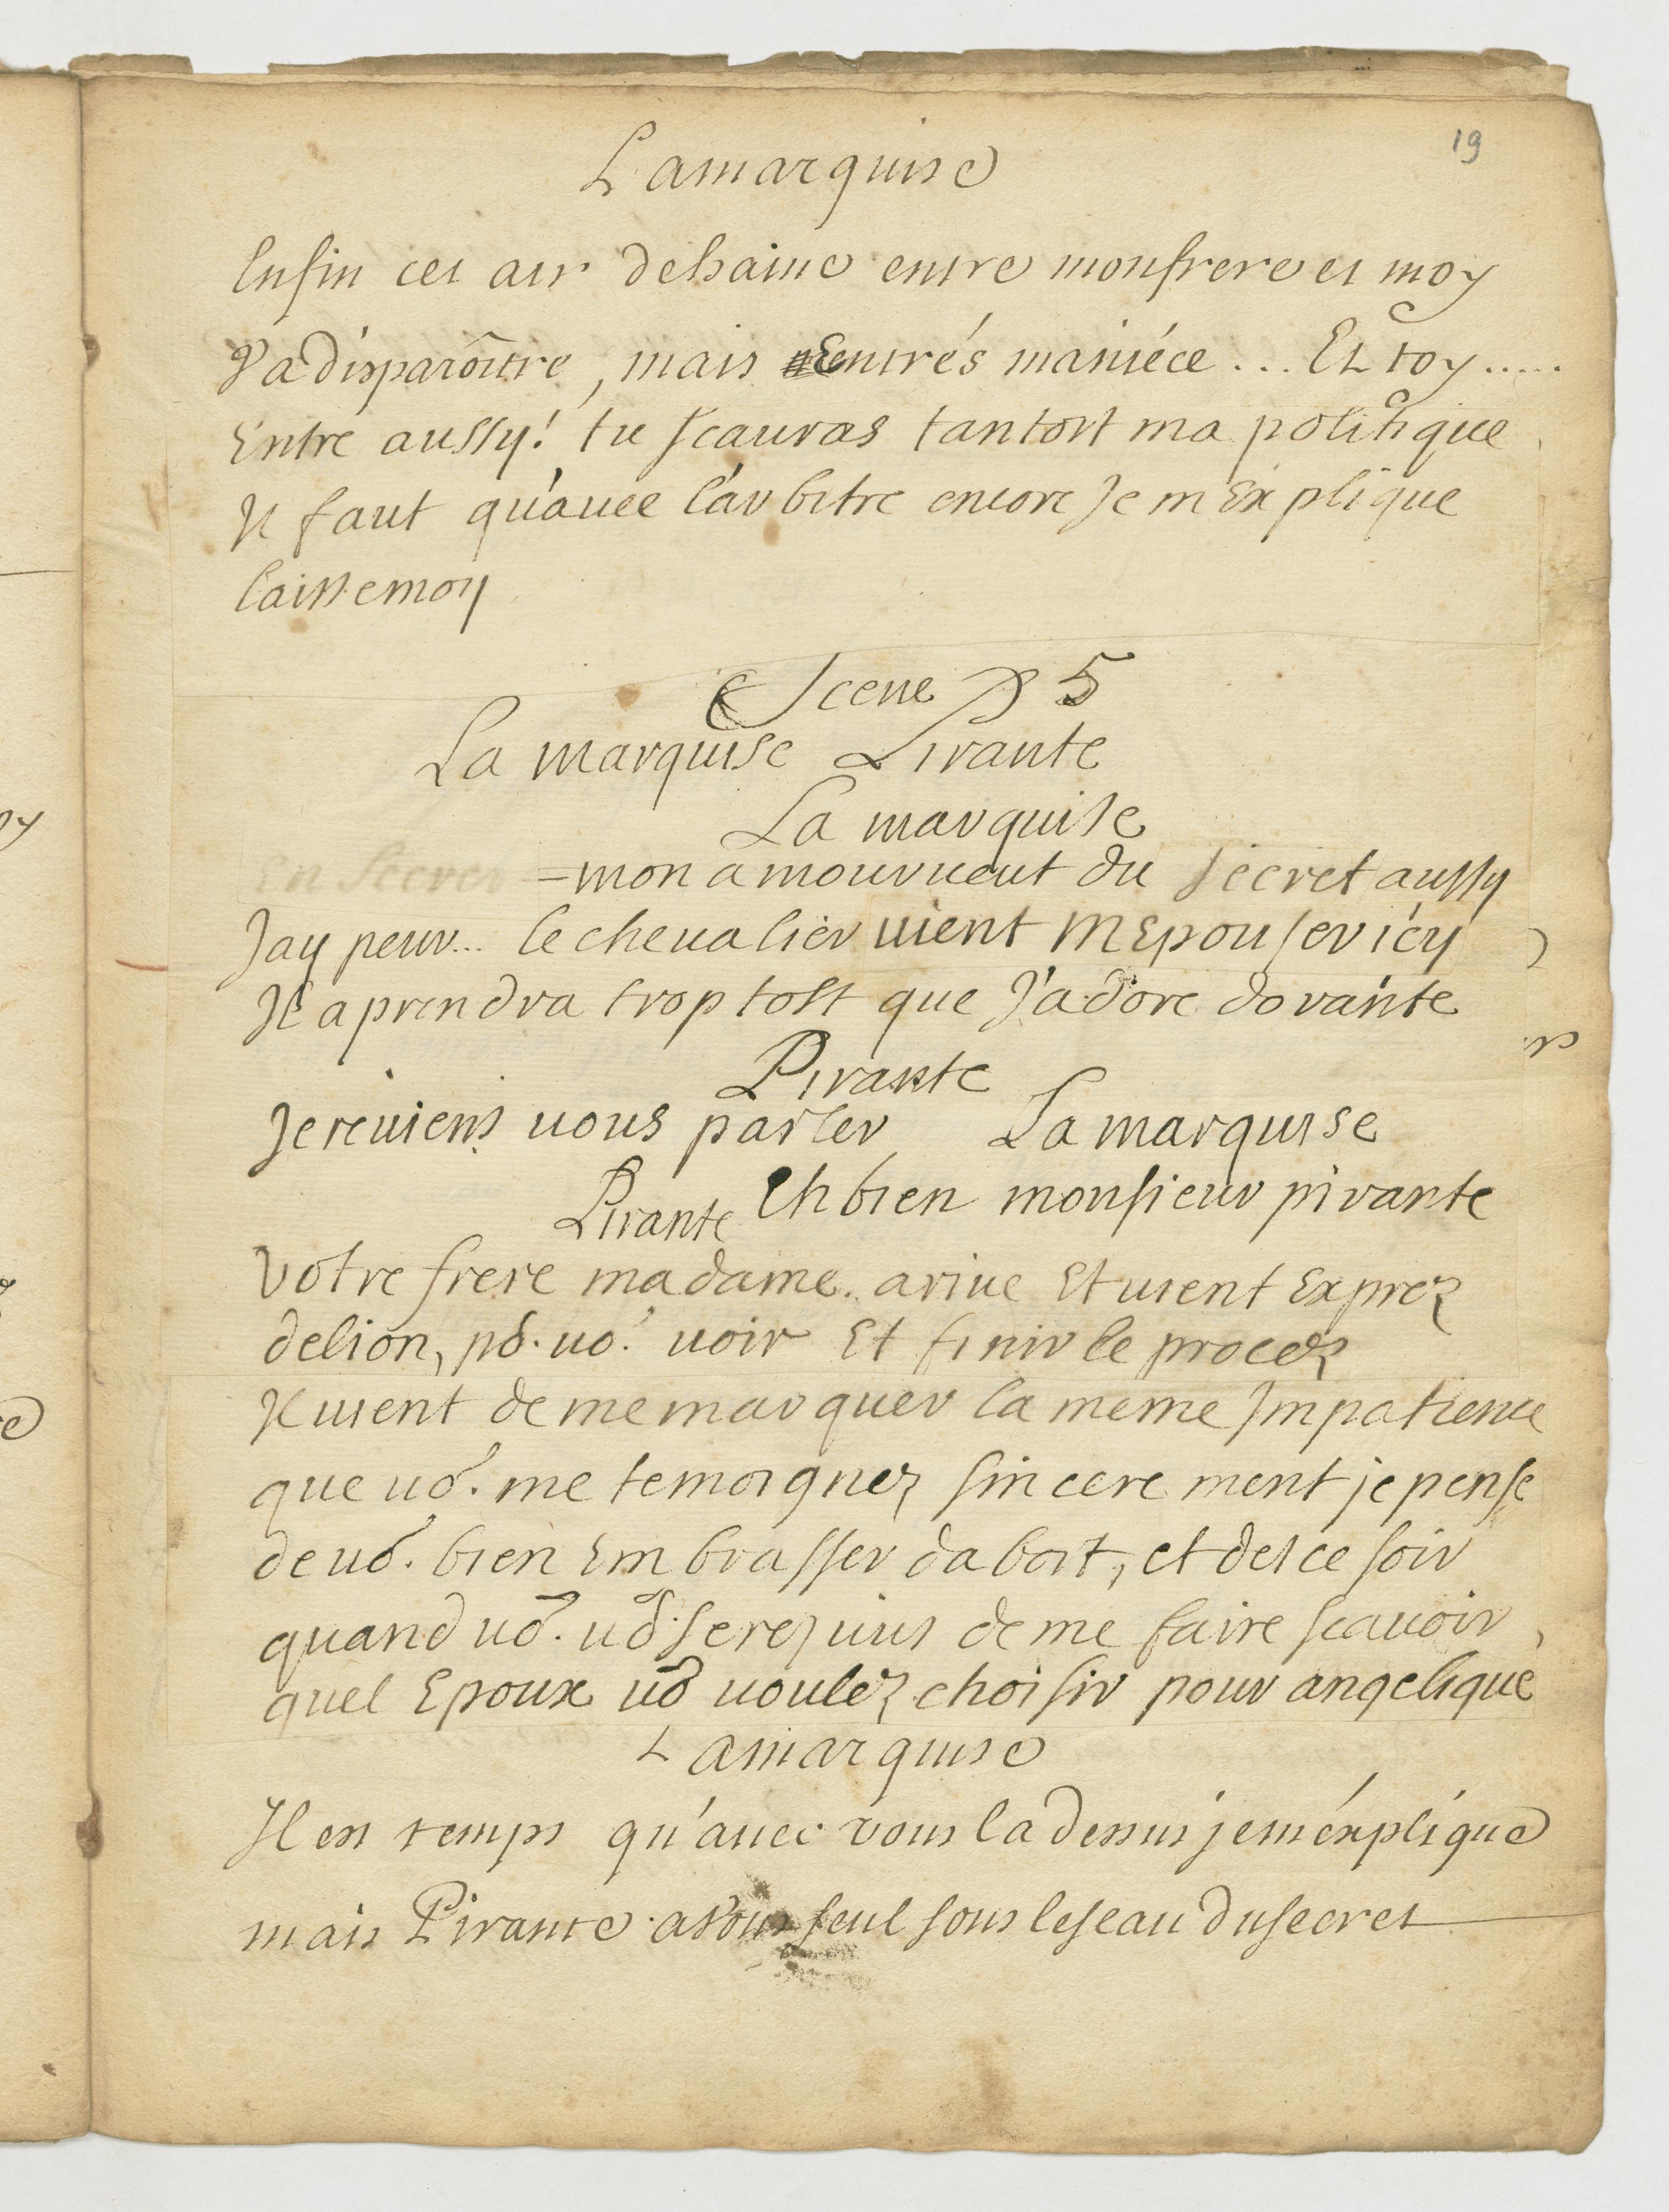 19
Lamarquise
Enfin cet air dehaine entre monfrere et moy
Va disparoître, mais Entrés maniéce ... Et toy .....
Entre aussy! tu scauras tantost ma politique
Il faut qu'auec l'arbitre encore Je m'Explique
laissemoy
Scene 5
La marquise Pirante
La marquise
En secret = mon amour ueut du secret aussy
Jay peur... le cheualier uient m'Epouser icy
Il aprendra trop tost que J'adore dorante
Pirante
Je reuiens uous parler La marquise
Eh bien monsieur pirante
Pirante
Votre frere madame. ariue Et uient Exprez
delion, pr. uo. uoir Et finir le procez
Il uient de me marquer la meme Impatience
que uo. me temoignez sincerement je pense
de uo. bien Embrasser dabort, et des ce soir
quand uo. uo. serez uus de me faire scauoir
quel Epoux uo uoulez choisir pour angelique
Lamarquise
Il est temps qu'auec vous la dessus jem'éxplique
mais Pirante a vous seul sous leseau dusecret